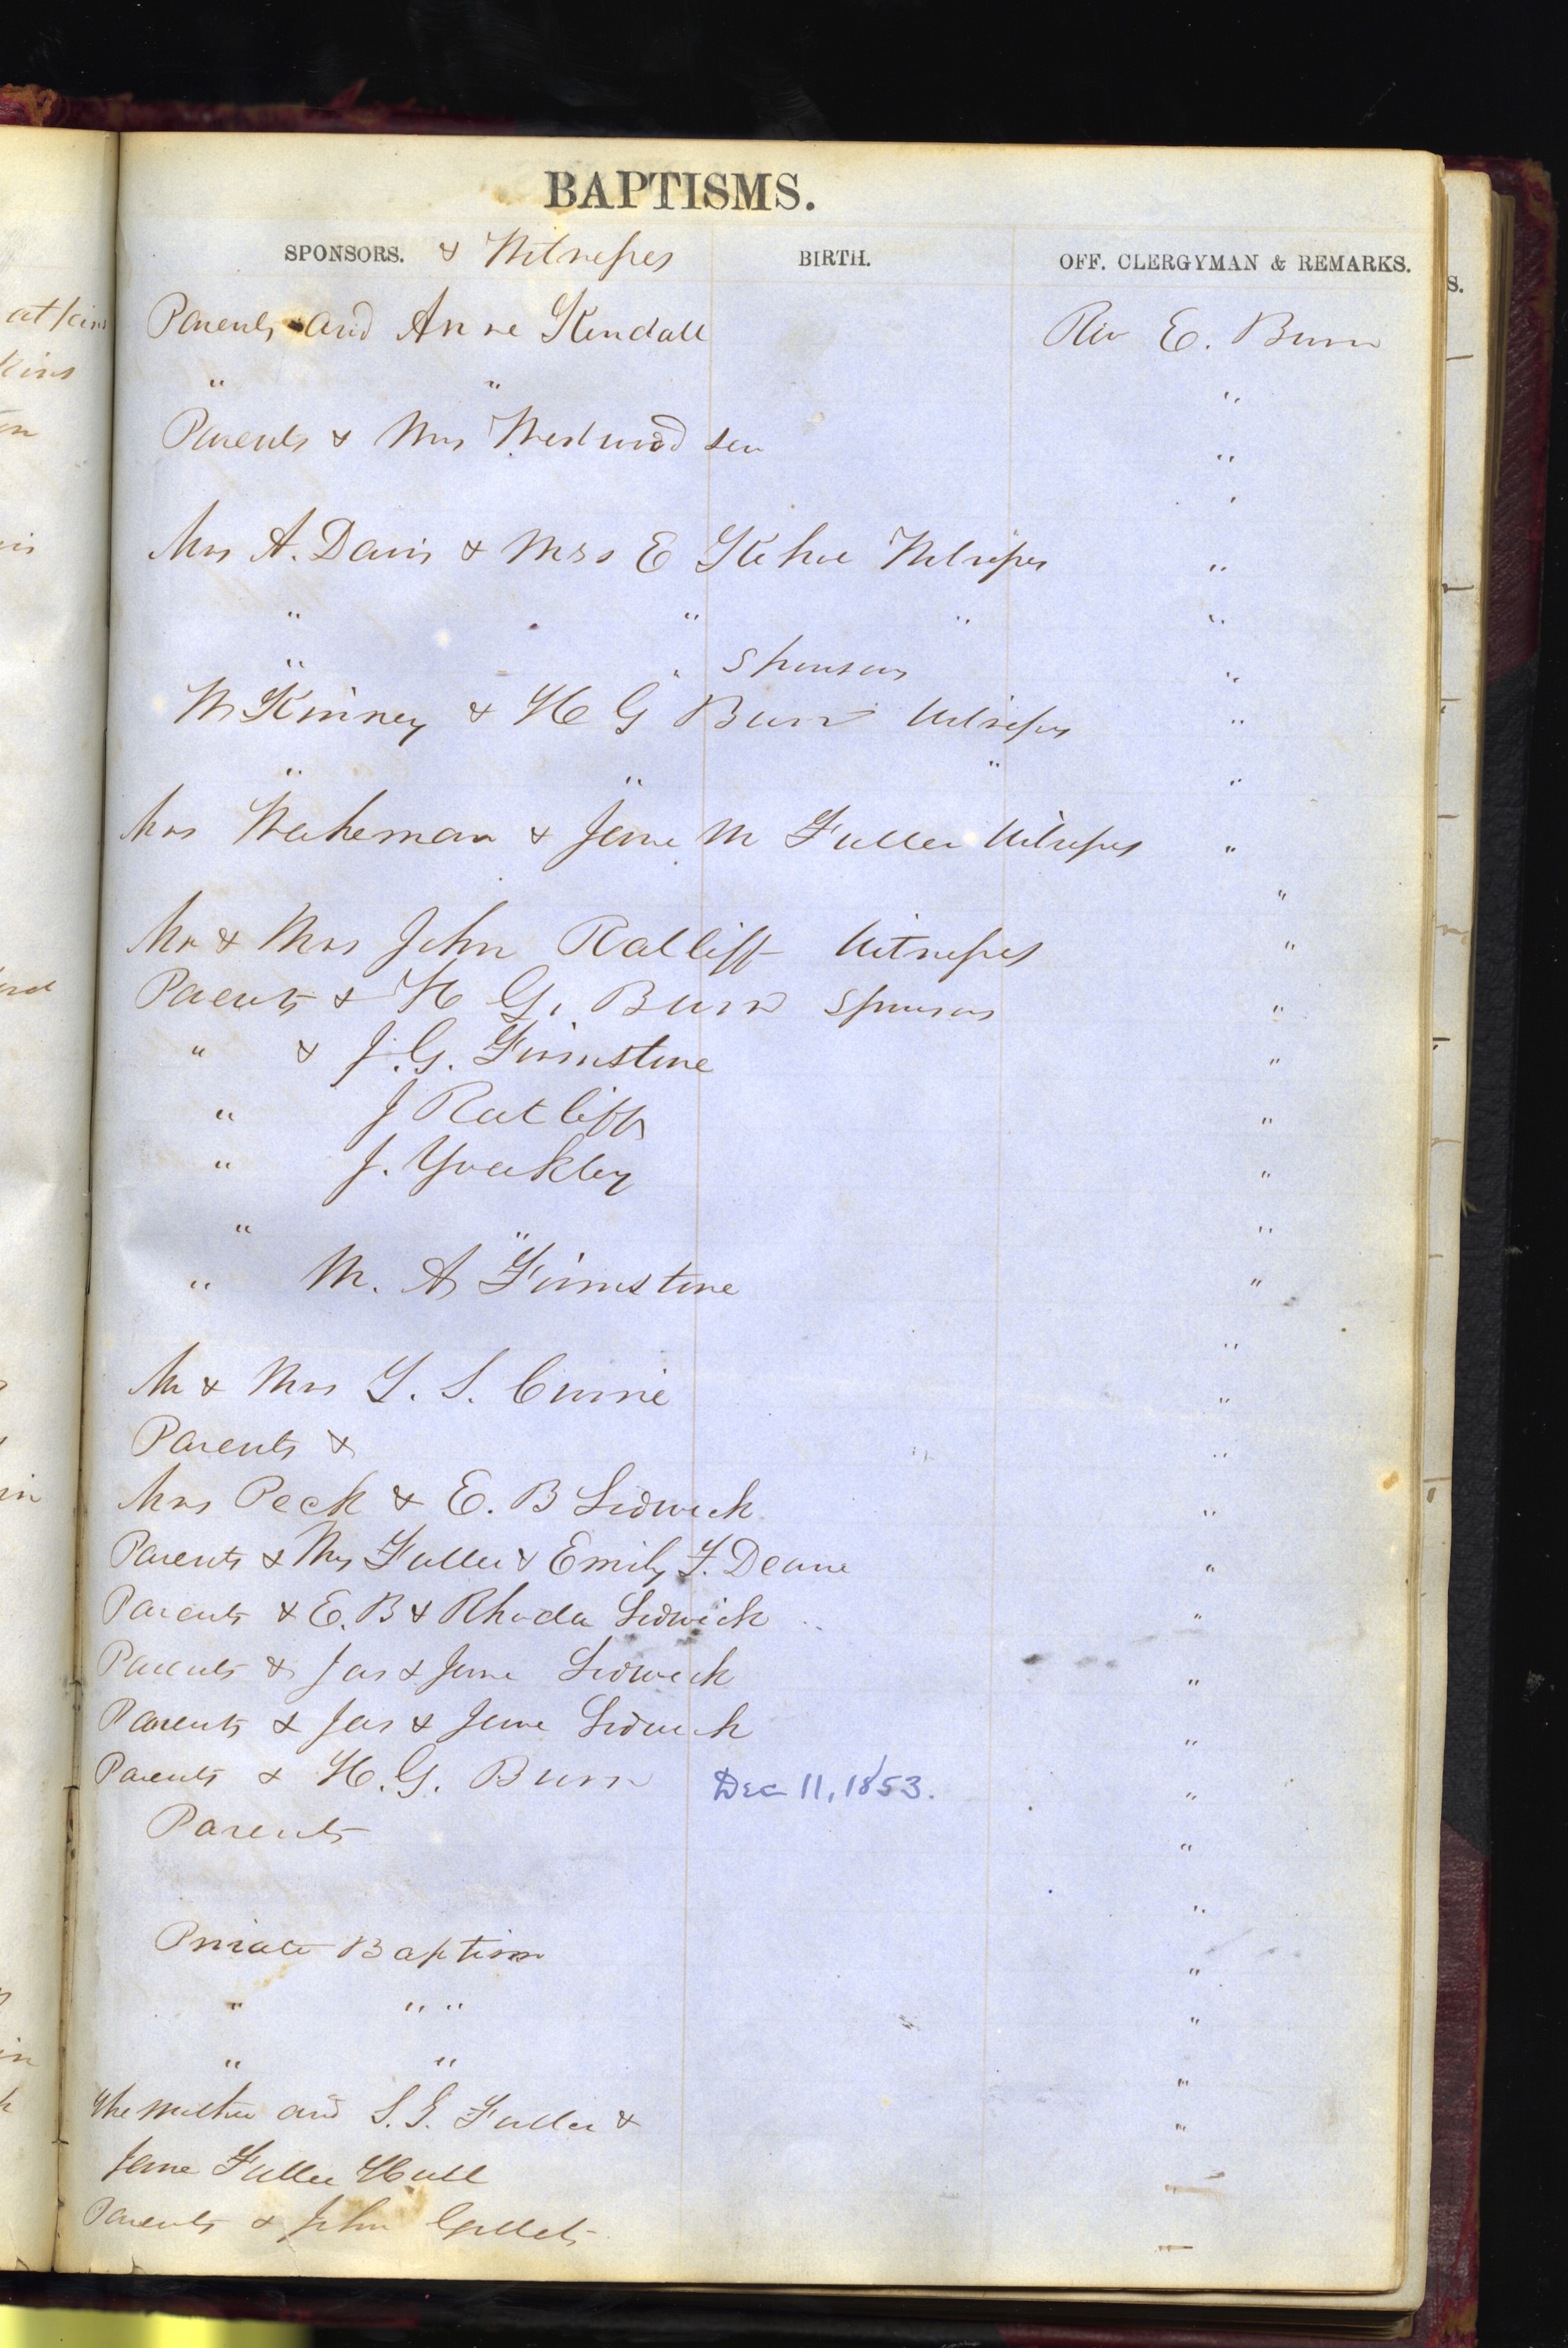 BAPTISMS.
SPONSORS. & Witnesses BIRTH. OFF. CLERGYMAN & REMARKS.
Parents and Anne Kendall Rev E. Burn
" " "
Parents & Mrs Westwood Sen "
'
Mrs A. Davis & Mrs E Kehoe Witnesses "
" " " "
" " Sponsors "
M Kinney & H G Burn Witnesses "
" " " "
Mrs Wakeman & Jane M Fuller Witnesses "
"
Mr & Mrs John Ratliff Witnesses "
Parents & H G. Burn Sponsors "
" & J. G. Firmstone "
" J Ratliff "
" J. Yoakley "
" " "
" M. A Firmstone "
"
Mr & Mrs S. Currie "
Parents & "
Mrs Peck & E. B Sidwick "
Parents & Mrs Fuller & Emily F. Deane "
Parents & E. B & Rhoda Sidwick "
Parents & Jas & Jane Sidwick "
Parents & Jas & Jane Sidwick "
Parents & H. G. Burn Dec 11, 1853. "
Parents "
"
Private Baptism "
" " " "
" " "
The Mother and S. G. Fuller & "
Jane Fuller Hull "
Parents & John
S.
at/kins
kins
in